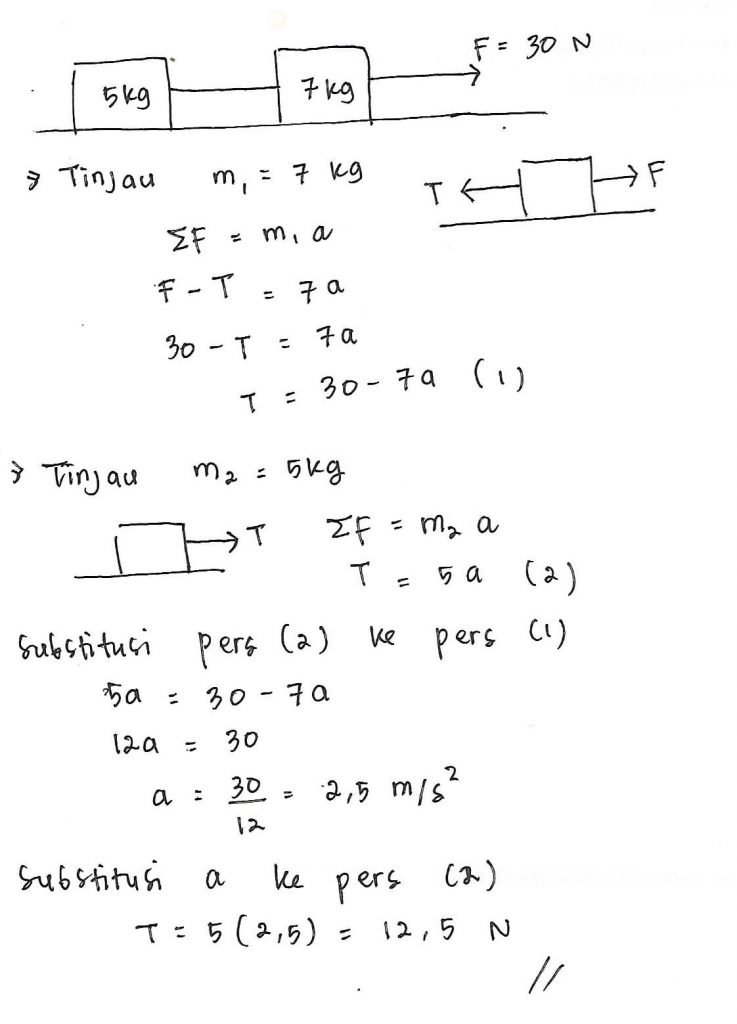 F = 30 N
5kg 7kg
→ Tinjau m₁ = 7 kg
T F
ΣF = m₁ a
F - T = 7a
30 - T = 7a
T = 30 - 7a (1)
→ Tinjau m₂ = 5kg
T ΣF = m₂ a
T = 5a (2)
Substitusi pers (2) ke pers (1)
5a = 30 - 7a
12a = 30
a = 30/12 = 2,5 m/s²
Substitusi a ke pers (2)
T = 5(2,5) = 12,5 N
//